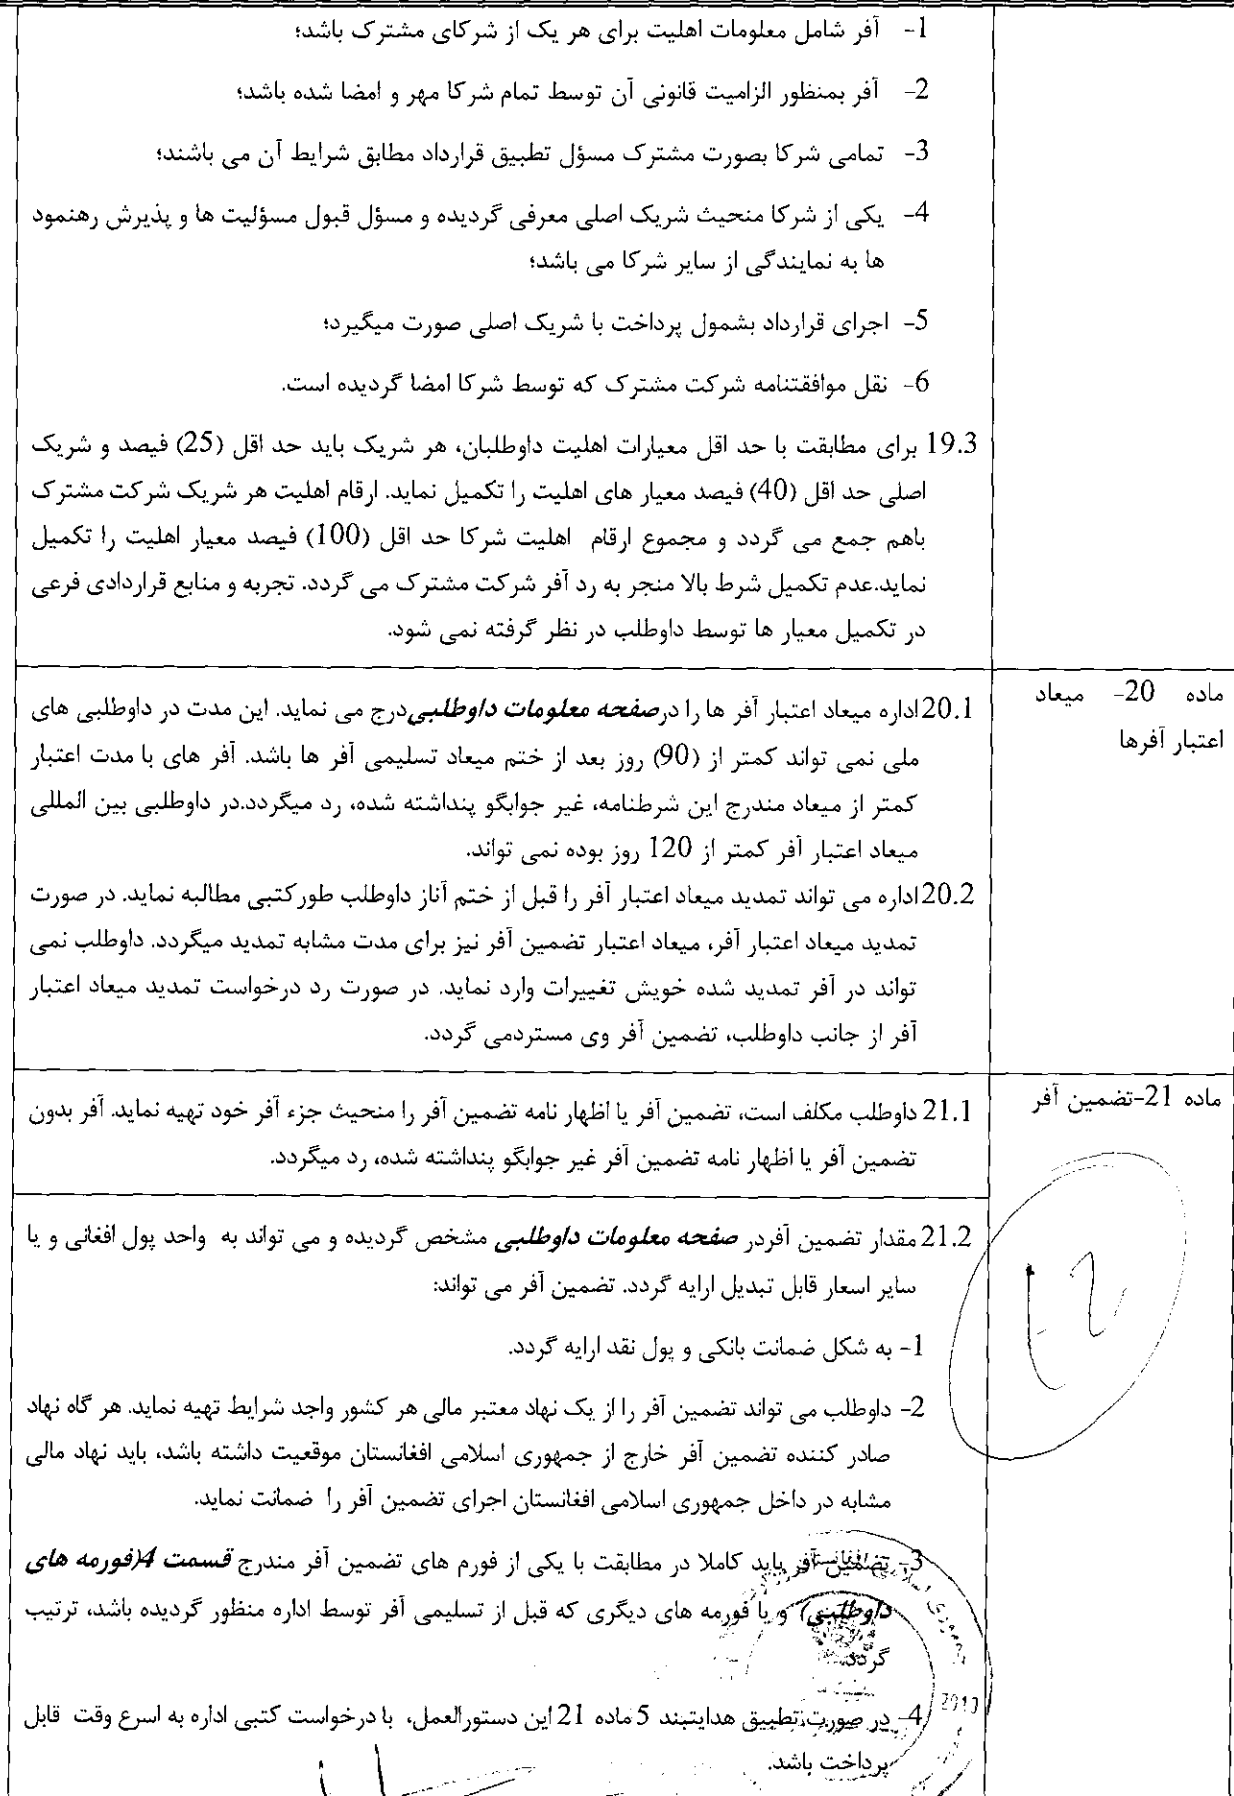 1- آفر شامل معلومات اهلیت برای هر یک از شرکای مشترک باشد؛
2- آفر بمنظور الزامیت قانونی آن توسط تمام شرکا مهر و امضا شده باشد؛
3- تمامی شرکا بصورت مشترک مسؤل تطبیق قرارداد مطابق شرایط آن می باشند؛
4- یکی از شرکا منحیث شریک اصلی معرفی گردیده و مسؤل قبول مسؤلیت ها و پذیرش رهنمود
ها به نمایندگی از سایر شرکا می باشد؛
5- اجرای قرارداد بشمول پرداخت با شریک اصلی صورت میگیرد؛
6- نقل موافقتنامه شرکت مشترک که توسط شرکا امضا گردیده است.
19.3 برای مطابقت با حد اقل معیارات اهلیت داوطلبان، هر شریک باید حد اقل (25) فیصد و شریک
اصلی حد اقل (40) فیصد معیار های اهلیت را تکمیل نماید. ارقام اهلیت هر شریک شرکت مشترک
باهم جمع می گردد و مجموع ارقام اهلیت شرکا حد اقل (100) فیصد معیار اهلیت را تکمیل
نماید.عدم تکمیل شرط بالا منجر به رد آفر شرکت مشترک می گردد. تجربه و منابع قراردادی فرعی
در تکمیل معیار ها توسط داوطلب در نظر گرفته نمی شود.
ماده 20- میعاد
اعتبار آفرها
20.1اداره میعاد اعتبار آفر ها را درصفحه معلومات داوطلبیدرج می نماید. این مدت در داوطلبی های
ملی نمی تواند کمتر از (90) روز بعد از ختم میعاد تسلیمی آفر ها باشد. آفر های با مدت اعتبار
کمتر از میعاد مندرج این شرطنامه، غیر جوابگو پنداشته شده، رد میگردد.در داوطلبی بین المللی
میعاد اعتبار آفر کمتر از 120 روز بوده نمی تواند.
20.2اداره می تواند تمدید میعاد اعتبار آفر را قبل از ختم آناز داوطلب طورکتبی مطالبه نماید. در صورت
تمدید میعاد اعتبار آفر، میعاد اعتبار تضمین آفر نیز برای مدت مشابه تمدید میگردد. داوطلب نمی
تواند در آفر تمدید شده خویش تغییرات وارد نماید. در صورت رد درخواست تمدید میعاد اعتبار
آفر از جانب داوطلب، تضمین آفر وی مستردمی گردد.
ماده 21-تضمین آفر
21.1 داوطلب مکلف است، تضمین آفر یا اظهار نامه تضمین آفر را منحیث جزء آفر خود تهیه نماید. آفر بدون
تضمین آفر یا اظهار نامه تضمین آفر غیر جوابگو پنداشته شده، رد میگردد.
21.2مقدار تضمین آفردر صفحه معلومات داوطلبی مشخص گردیده و می تواند به واحد پول افغانی و یا
سایر اسعار قابل تبدیل ارایه گردد. تضمین آفر می تواند:
1- به شکل ضمانت بانکی و پول نقد ارایه گردد.
2- داوطلب می تواند تضمین آفر را از یک نهاد معتبر مالی هر کشور واجد شرایط تهیه نماید. هر گاه نهاد
صادر کننده تضمین آفر خارج از جمهوری اسلامی افغانستان موقعیت داشته باشد، باید نهاد مالی
مشابه در داخل جمهوری اسلامی افغانستان اجرای تضمین آفر را ضمانت نماید.
3- تضمین آفر باید کاملا در مطابقت با یکی از فورم های تضمین آفر مندرج قسمت 4(فورمه های
داوطلبی) و یا فورمه های دیگری که قبل از تسلیمی آفر توسط اداره منظور گردیده باشد، ترتیب
گردد.
4- در صورت تطبیق هدایتبند 5 ماده 21 این دستورالعمل، با درخواست کتبی اداره به اسرع وقت قابل
پرداخت باشد.